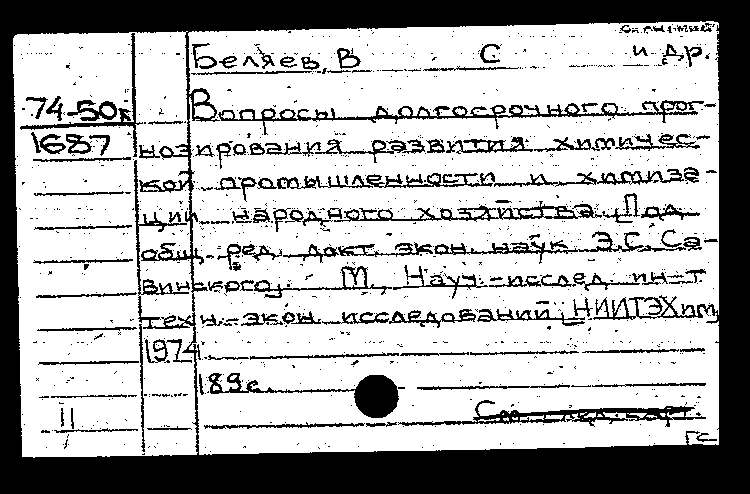 Беляев, В С и др.
74-50к
1687
Вопросы долгосрочного прог-
нозирования развития химичес-
кой промышленности и химиза-
ции народного хозяйства [Под
общ. ред. докт. экон. наук Э.С. Са-
винского]. М., Науч.-исслед. ин-т
техн.-экон. исследований [НИИТЭХим]
1974
189с.
См. след. карт.
11
ГС